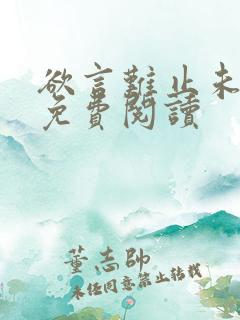 欲言難止未
免費閱讀
董志帥
未经同意禁止转载